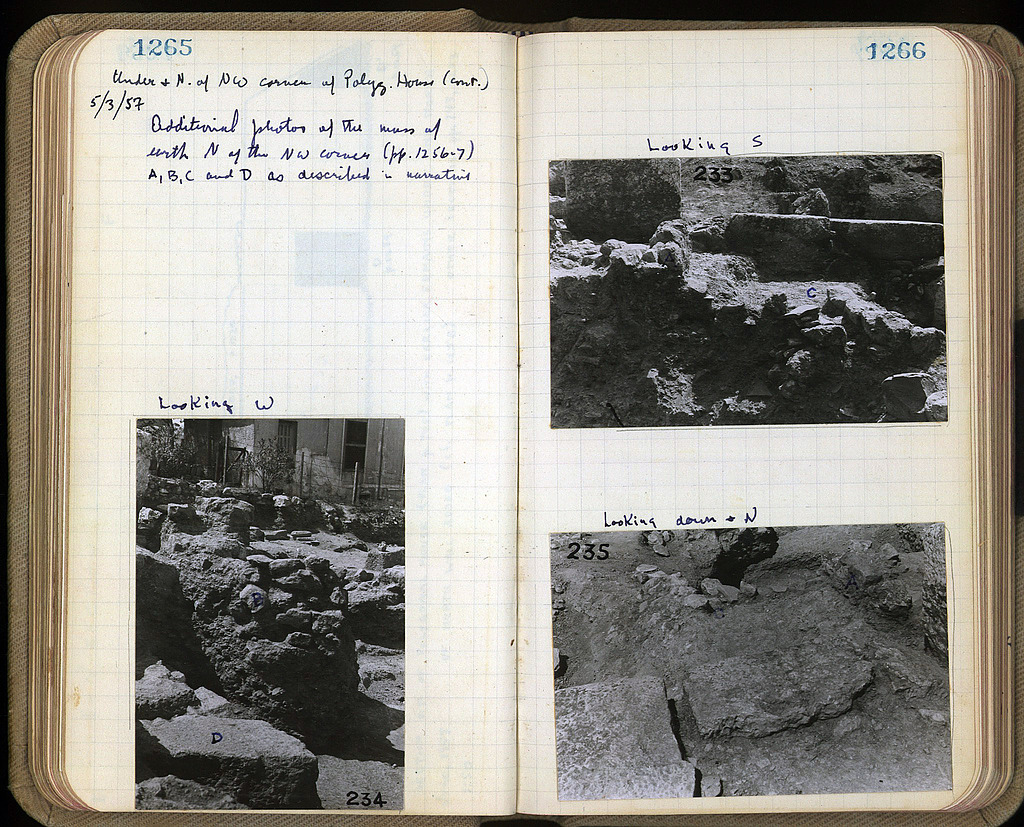 1265
Under & N. of NW corner of Polyg. House (cont.)
5/3/57
Additional photos of the mass of
earth N of the NW corner (pp. 1256-7)
A, B, C and D as described in narrative
Looking W
B
D
234
1266
Looking S
233
A
C
Looking down & N
235
A